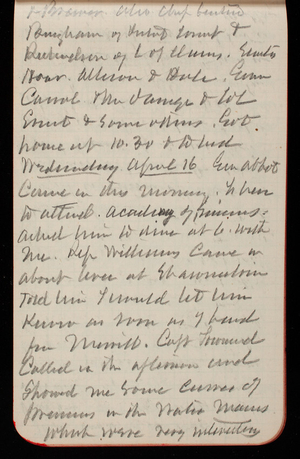 Bingham of Dist Court &
Richardson of C of Claims. Senators
Hoar. Allison & Hale. Genl
Carrol Mr Savage & Col
Ernst & some others. Got
home at 10.30 & to bed
Wednesday April 16 Gen Abbot
Came in this morning. Is here
to attend academy of Sciences.
asked him to dine at 6. with
me. Rep Williams came in
about at Shawneetown
Told him I would let him
Know as soon as I heard
fm Merrill. Capt Townsend
Called in the afternoon and
Showed me some curves of
in the Water Mains
which were very interesting